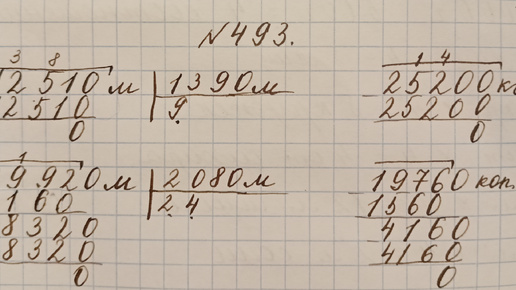 №493.
3 8
2510м 1390м
2510 9
0
1 4
25200к
25200
0
1
9920м 2080м
160 24
8320
8320
0
19760коп.
1560
4160
4160
0